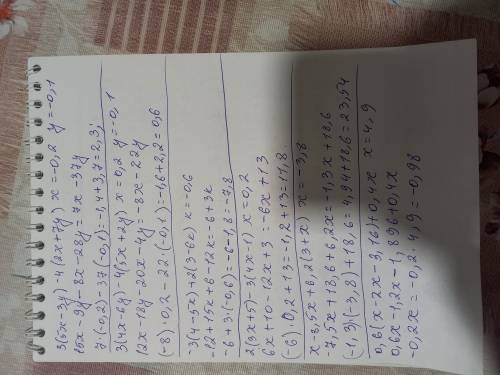 3(5x-3y)-4(2x+7y) x=-0,2 y=-0,1
15x-9y-8x-28y=7x-37y
7·(-0,2)-37(-0,1)=-1,4+3,7=2,3;
3(4x-6y)-4(5x+2y) x=0,2 y=-0,1
12x-18y-20x-4y=-8x-22y
(-8)·0,2-22·(-0,1)=-1,6+2,2=0,6
-3(4-5k)+2(3-6k) k=-0,6
-12+15k+6-12k=-6+3k
-6+3·(-0,6)=-6-1,8=-7,8
2(3x+5)-3(4x-1) x=0,2
6x+10-12x+3=-6x+13
(-6)·0,2+13=-1,2+13=11,8
x-8,5x+6,2(3+x) x=-3,8
-7,5x+18,6+6,2x=-1,3x+18,6
(-1,3)·(-3,8)+18,6=4,94+18,6=23,54
0,6(x-2x-3,16)+0,4x x=4,9
0,6x-1,2x-1,896+0,4x
-0,2x=-0,2·4,9=-0,98